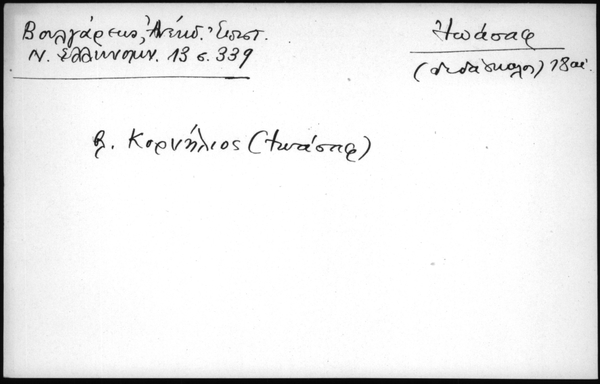 Βουλγάρεως, Ἀνέκδ. Ἐπιστ.
Ν. Ἑλληνομν. 13 σ. 339
Ἰωάσαφ
(διδάσκαλος) 18 αἰ.
βλ. Κορνήλιος (Ἰωάσαφ)